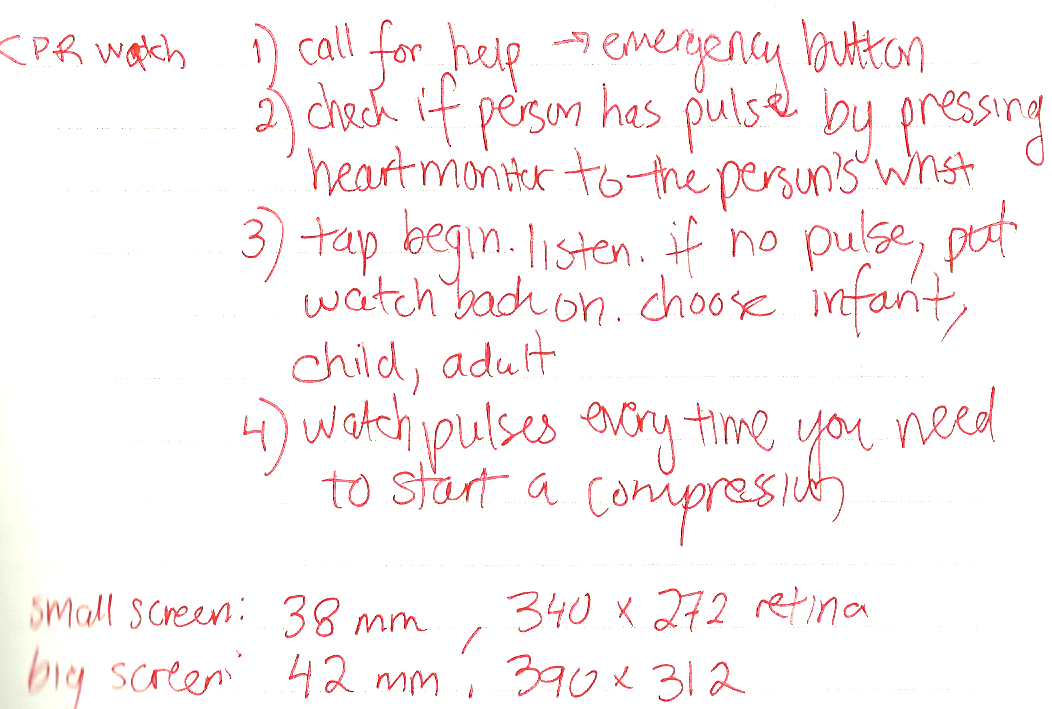 CPR watch 1) call for help → emergency button
2) check if person has pulse by pressing
heart monitor to the person's wrist
3) tap begin. listen. if no pulse, put
watch back on. choose infant,
child, adult
4) watch pulses every time you need
to start a compression
small screen: 38 mm, 340 x 272 retina
big screen: 42 mm, 390 x 312